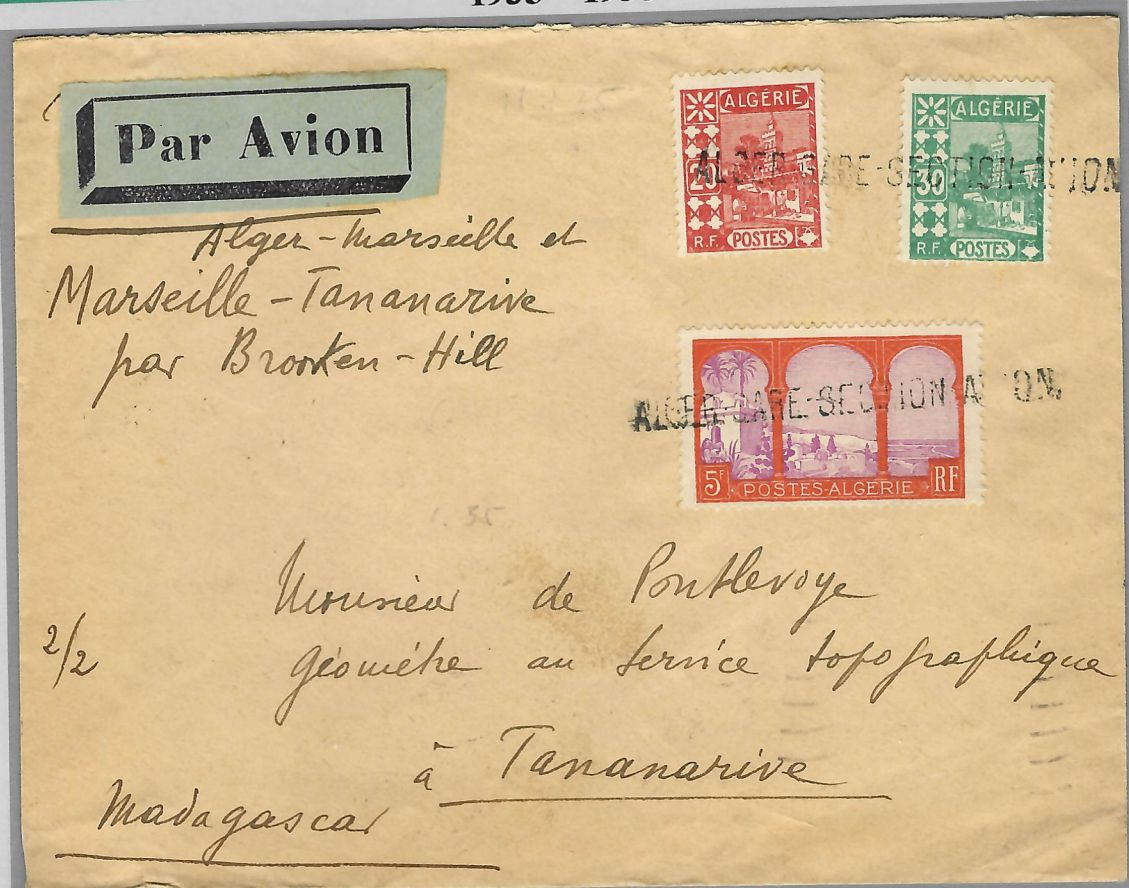 Par Avion
Alger-Marseille et
Marseille-Tananarive
par Brocken-Hill
ALGÉRIE
20
R.F. POSTES
ALGÉRIE
30
R.F. POSTES
ALGER-GARE-SECTION-AVION
ALGER-GARE-SECTION-AVION
5F POSTES-ALGERIE RF
1.35
Monsieur de Pontlevoye
géomètre au Service topographique
2/2
à Tananarive
Madagascar